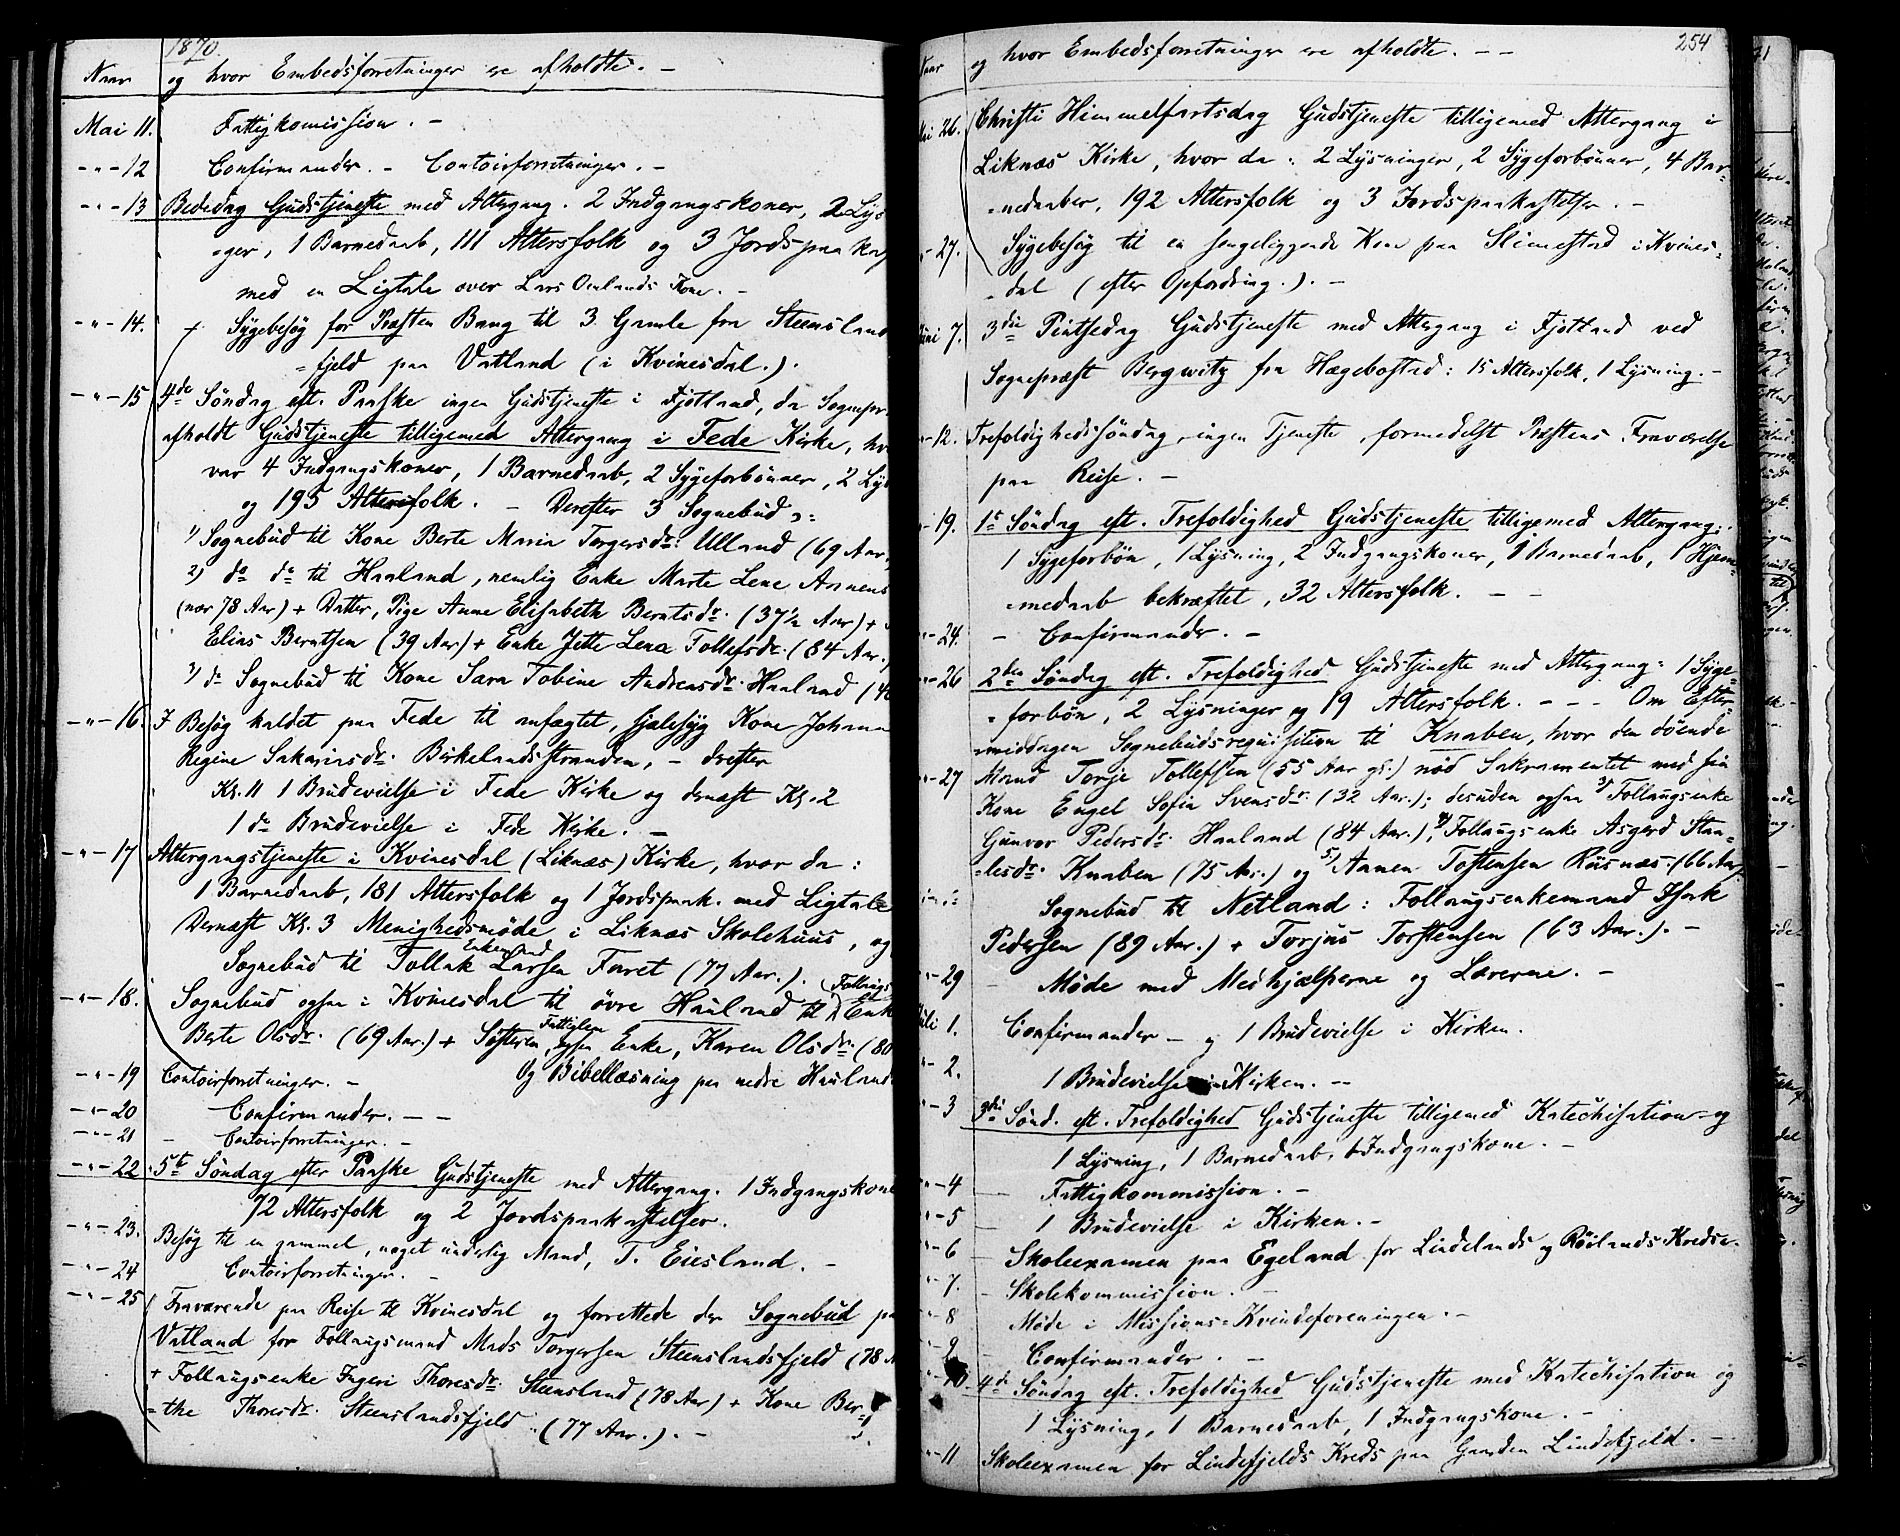 1870.
Naar og hvor Embedsforretninger ere afholdte. —
Mai 11. Fattigkomission. —
-"- 12 Confirmander. - Contoirforretninger. —
-"- 13 Bededag Gudstjeneste med Altergang. 2 Indgangskoner, 2 Lys
-ger, 1 Barnedaab, 111 Altersfolk og 3 Jordspaakas
med en Ligtale over Lars Omlands Kone. —
-"- 14. Sygebesøg for Præsten Bang til 3 Gamle fra Steensland
-fjeld paa Vatland (i Kvinesdal.).
-"- 15 4de Søndag eft. Paaske ingen Gudstjeneste i Fjotland, da Sognepr.
afholdt Gudstjeneste tilligemed Altergang i Fede Kirke, hv
var 4 Indgangskoner, 1 Barnedaab, 2 Sygeforbønner, 2 Lys
og 195 Altersfolk. — Derefter 3 Sognebud ɔ:
1) Sognebud til Kone Berte Maria Torgersdr. Ulland (69 Aar,
2) do do til Haaland, nemlig Enke Marte Lene Aanens
(nær 78 Aar) + Datter, Pige Anne Elisabeth Berntsdr. (37½ Aar) +
Elias Berntsen (39 Aar) + Enke Jette Lena Tollefsdr. (84 Aar.)
3) do Sognebud til Kone Sara Tobine Andreasdr. Haaland (4
-"- 16. Besøg kaldet paa Fede til anfægtet, sjælesyg Kone Johan
Regine Sakariasdr. Birkelandsstranden, — drefter
Kl. 11 1 Brudevielse i Fede Kirke og dernæst Kl. 2
1 do Brudevielse i Fede Kirke. —
-"- 17 Altergangstjeneste i Kvinesdal (Liknæs) Kirke, hvor da:
1 Barnedaab, 181 Altersfolk og 1 Jordspaak. med Ligtale
Dernæst Kl. 3 Menighedsmøde i Liknæs Skolehuus, og
Sognebud til Tollak Enkemand Larsen Faret (77 Aar.).
-"- 18. Sognebud ogsaa i Kvinesdal til øvre Haaland til Follaugs Enk
Berte Olsdr. (69 Aar.) + Søsteren, Fattiglem ogsaa Enke, Karen Olsdr. (80
-"- 19 Contoirforretninger. — Og Bibellæsning paa nedre Haaland
-"- 20 Confirmander. — —
-"- 21 — Contoirforretninger. —
-"- 22 5te Søndag efter Paaske Gudstjeneste med Altergang. 1 Indgangskone
72 Altersfolk og 2 Jordspaakastelser.
-"- 23. Besøg til en gammel, noget underlig Mand, T. Eiesland. —
-"- 24 Contoirforretninger. —
-"- 25 Fraværende paa Reise til Kvinesdal og forrettede der Sognebud pa
Vatland for Follaugsmand Mads Torgersen Steenslandsfjeld (78 A
+ Follaugsenke Ingeri Thoresdr. Steensland (78 Aar) + Kone Ber-
-the Thoresdr. Steenslandsfjeld (77 Aar.). —
254
Naar og hvor Embedsforretninger ere afholdte. — —
Mai 26. Christi Himmelfartsdag Gudstjeneste tilligemed Altergang i
Liknæs Kirke, hvor da: 2 Lysninger, 2 Sygeforbønner, 4 Bar-
-nedaaber, 192 Altersfolk og 3 Jordspaakastelser. —
"- 27. Sygebesøg til en sengeliggende Kone paa Slimestad i Kvines-
-dal (efter Opfordring.). —
Juni 7. 3die Pintsedag Gudstjeneste med Altergang i Fjotland ved
Sognepræst Bergwitz fra Hægebostad: 15 Altersfolk, 1 Lysning. —
"- 12. Trefoldighedssøndag, ingen Tjeneste, formedelst Præstens Fraværelse
paa Reise. —
"- 19. 1ste Søndag eft. Trefoldighed Gudstjeneste tilligemed Altergang:
1 Sygeforbøn, 1 Lysning, 2 Indgangskoner, 1 Barnedaab, 1 Hjem-
-medaab bekræftet, 32 Altersfolk. — —
"- 24. — Confirmander. —
"- 26 2den Søndag eft. Trefoldighed Gudstjeneste med Altergang: 1 Syge-
-forbøn, 2 Lysninger og 19 Altersfolk. — — — Om Efter-
-middagen Sognebudsrequisition til Knaben, hvor den døende
"- 27 Mand Torje Tollefsen (55 Aar gl.) nød Sakramentet med sin
Kone Engel Sofia Svensdr. (32 Aar.); desuden ogsaa 3) Follaugsenke
Gunvor Pedersdr. Haaland (84 Aar.), 4) Follaugsenke Asgerd Staa-
-lesdr. Knaben (75 Aar.) og 5) Aanen Tostensen Risnæs. (66 Aar)
Sognebud til Netland: Follaugsenkemand Isak
Pedersen (89 Aar.) + Torjus Torstensen (63 Aar.). —
"- 29 Møde med Medhjælperne og Lærerne. —
Juli 1. Confirmander — og 1 Brudevielse i Kirken.
"- 2. 1 Brudevielse i Kirken. —
"- 3 3die Sønd. eft. Trefoldighed Gudstjeneste tilligemed Katechisation og
1 Lysning, 1 Barnedaab, 1 Indgangskone. —
"- 4 — Fattigkommission. —
"- 5 — 1 Brudevielse i Kirken. —
"- 6 — Skoleexamen paa Egeland for Lindelands og Røilands Kredse.
"- 7. — Skolekommission. —
"- 8 Møde i Missions-Kvindeforeningen. —
"- 9 — Confirmander. —
"- 10 4de Søndag eft. Trefoldighed Gudstjeneste med Katechisation og
1 Lysning, 1 Barnedaab, 1 Indgangskone. —
"- 11 Skoleexamen for Lindefjelds Kreds paa Gaarden Lindefjeld. —